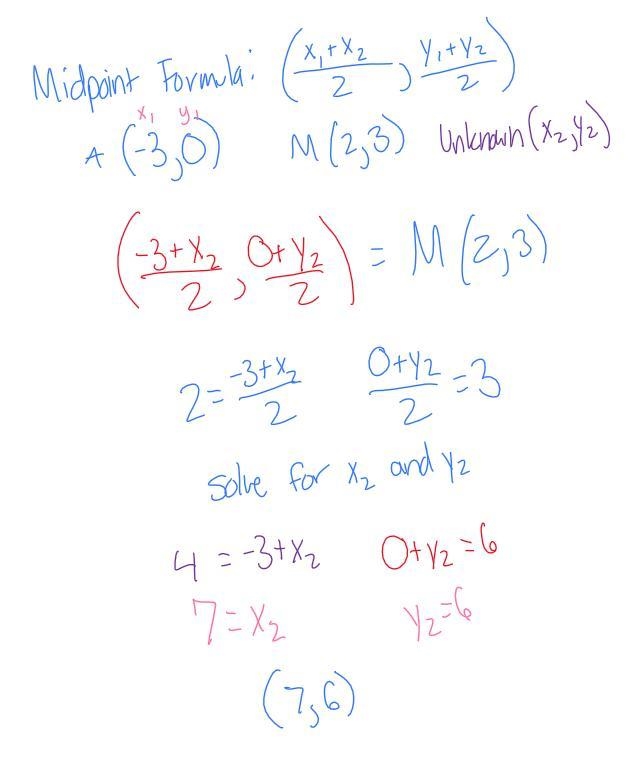 Midpoint Formula: ( x₁+x₂ / 2 , y₁+y₂ / 2 )
x₁ y₁
A (-3,0) M(2,3) Unknown(x₂,y₂)
( -3+x₂ / 2 , 0+y₂ / 2 ) = M(2,3)
2 = -3+x₂ / 2 0+y₂ / 2 = 3
solve for x₂ and y₂
4 = -3+x₂ 0+y₂ = 6
7 = x₂ y₂ = 6
(7,6)